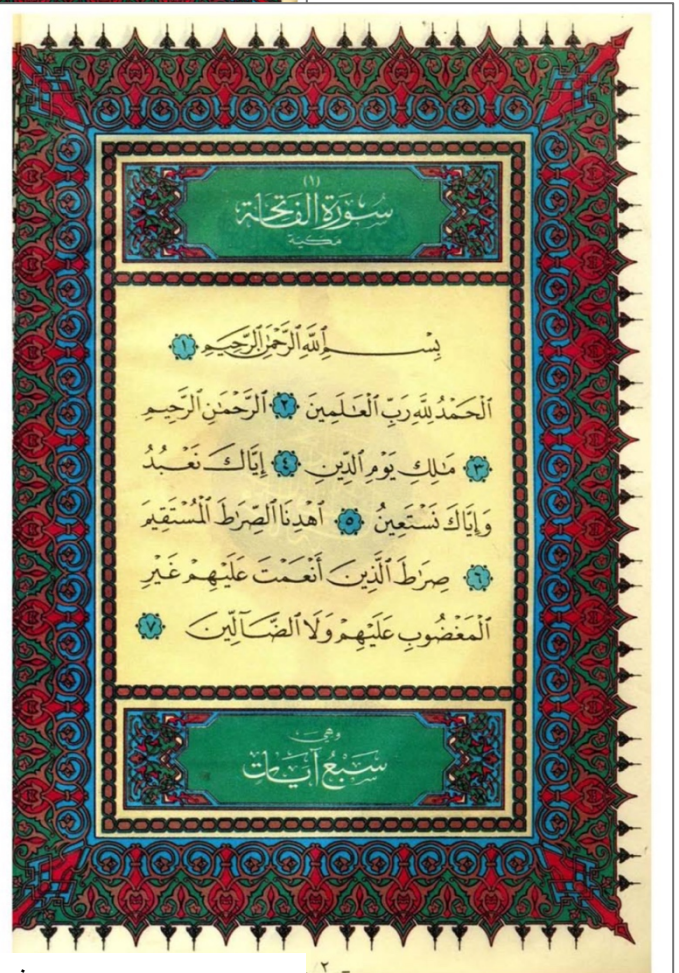 (١)
سُورَةُ الفَاتِحَة
مَكِّيَّة
بِسْمِ ٱللَّهِ ٱلرَّحْمَٰنِ ٱلرَّحِيمِ ١
ٱلْحَمْدُ لِلَّهِ رَبِّ ٱلْعَٰلَمِينَ ٢ ٱلرَّحْمَٰنِ ٱلرَّحِيمِ
٣ مَٰلِكِ يَوْمِ ٱلدِّينِ ٤ إِيَّاكَ نَعْبُدُ
وَإِيَّاكَ نَسْتَعِينُ ٥ ٱهْدِنَا ٱلصِّرَٰطَ ٱلْمُسْتَقِيمَ
٦ صِرَٰطَ ٱلَّذِينَ أَنْعَمْتَ عَلَيْهِمْ غَيْرِ
ٱلْمَغْضُوبِ عَلَيْهِمْ وَلَا ٱلضَّآلِّينَ ٧
وَهِيَ
سَبْعُ آيَات
٢